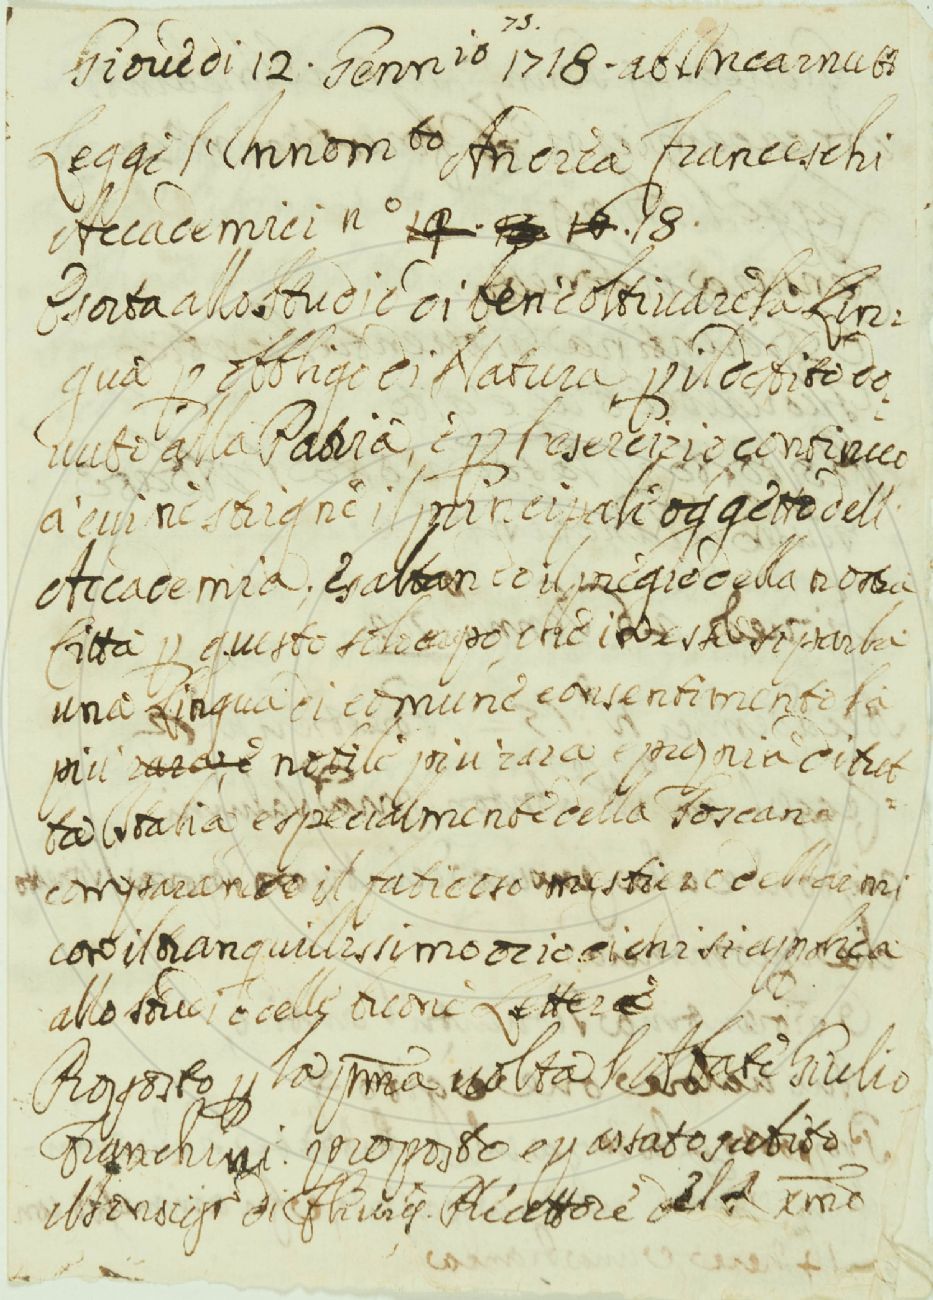 Giovedì 12. Gennio 1718. ab Incarnat
Leggi l'Innomto Andrea Franceschi
Accademici n° 18.
Esorta allo Studio di ben coltivare la Lin=
gua p obbligo di Natura, p il debito do=
vuto alla Patria, e p l'esercizio continuo
a cui ne strigne il principale oggetto dell'
Accademia, esaltando il pregio della nostra
Città p questo sol capo, che in essa si parla
una Lingua di comune consentimento la
più rara e nobile più rara, e propria di tut=
ta Italia e specialmente della Toscana
comparando il faticoso mestiero dell armi
con il tranquillissimo ozio di chi si applica
allo studio delle buone Lettere
Proposto p la pma volta l'Abate Giulio
Franchini. proposto e passato subito
il Consigr di Rettore del Smo